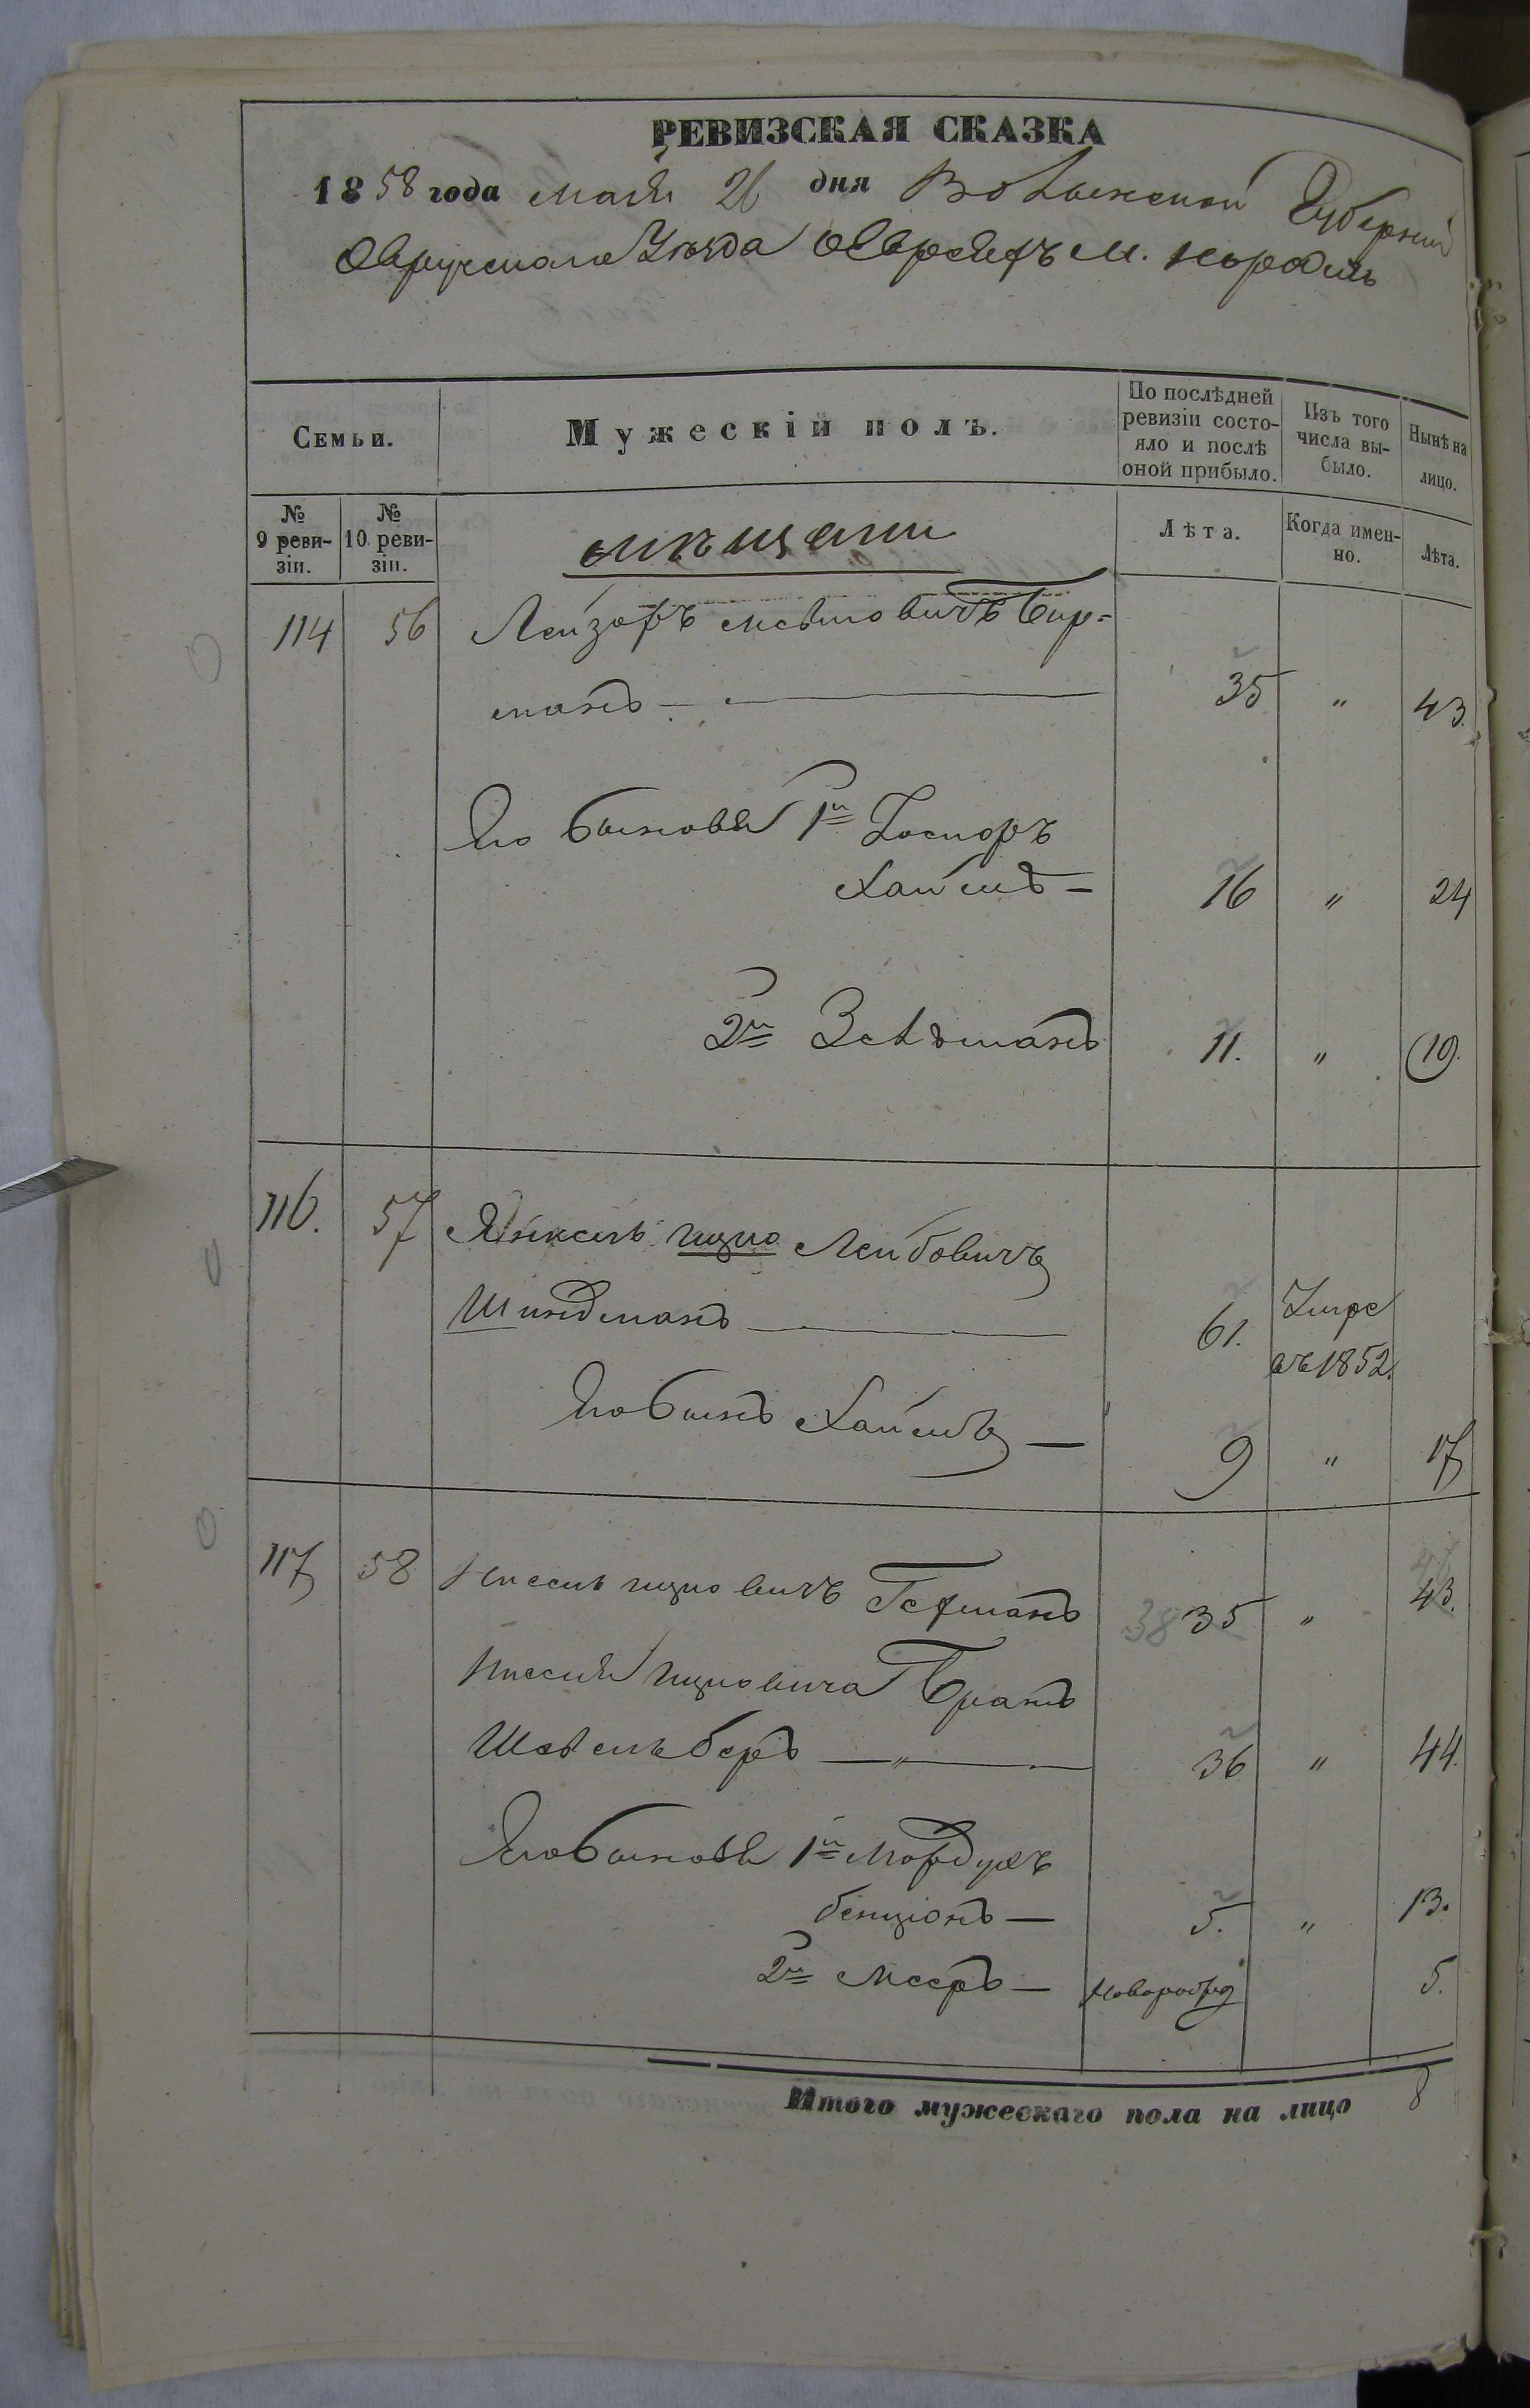 РЕВИЗСКАЯ СКАЗКА
1858 года мая 26 дня Волынской Губернии
Овручскаго Уезда о Евреяхъ м. Народичь
Семьи.
Мужескій полъ.
По послѣдней ревизіи состо-
яло и послѣ
оной прибыло.
Изъ того
числа вы-
было.
Нынѣ на
лицо.
№
9 реви-
зіи.
№
10 реви-
зіи.
мещане
Лѣта.
Когда имен-
но.
Лѣта.
114 56 Лейзоръ Бир=
манъ 35 " 43.
Его Сыновья 1й
Хаимъ 16 " 24
2й Зельманъ 11. " 19.
116. 57 Янкель Ицко Лейбовичъ
Шиндманъ 61. Умре
въ 1852.
Его Сынъ Хаимъ 9 " 17
117 58 Нисель Ицковичъ Гехманъ 38 35 " 47 43.
Ниселя Ицковича Братъ
Шевель Беръ " 36 " 44.
Его Сыновья 1й Мордухъ
Бенціонъ 5. " 13.
2й Мееръ 5.
Итого мужескаго пола на лицо 8